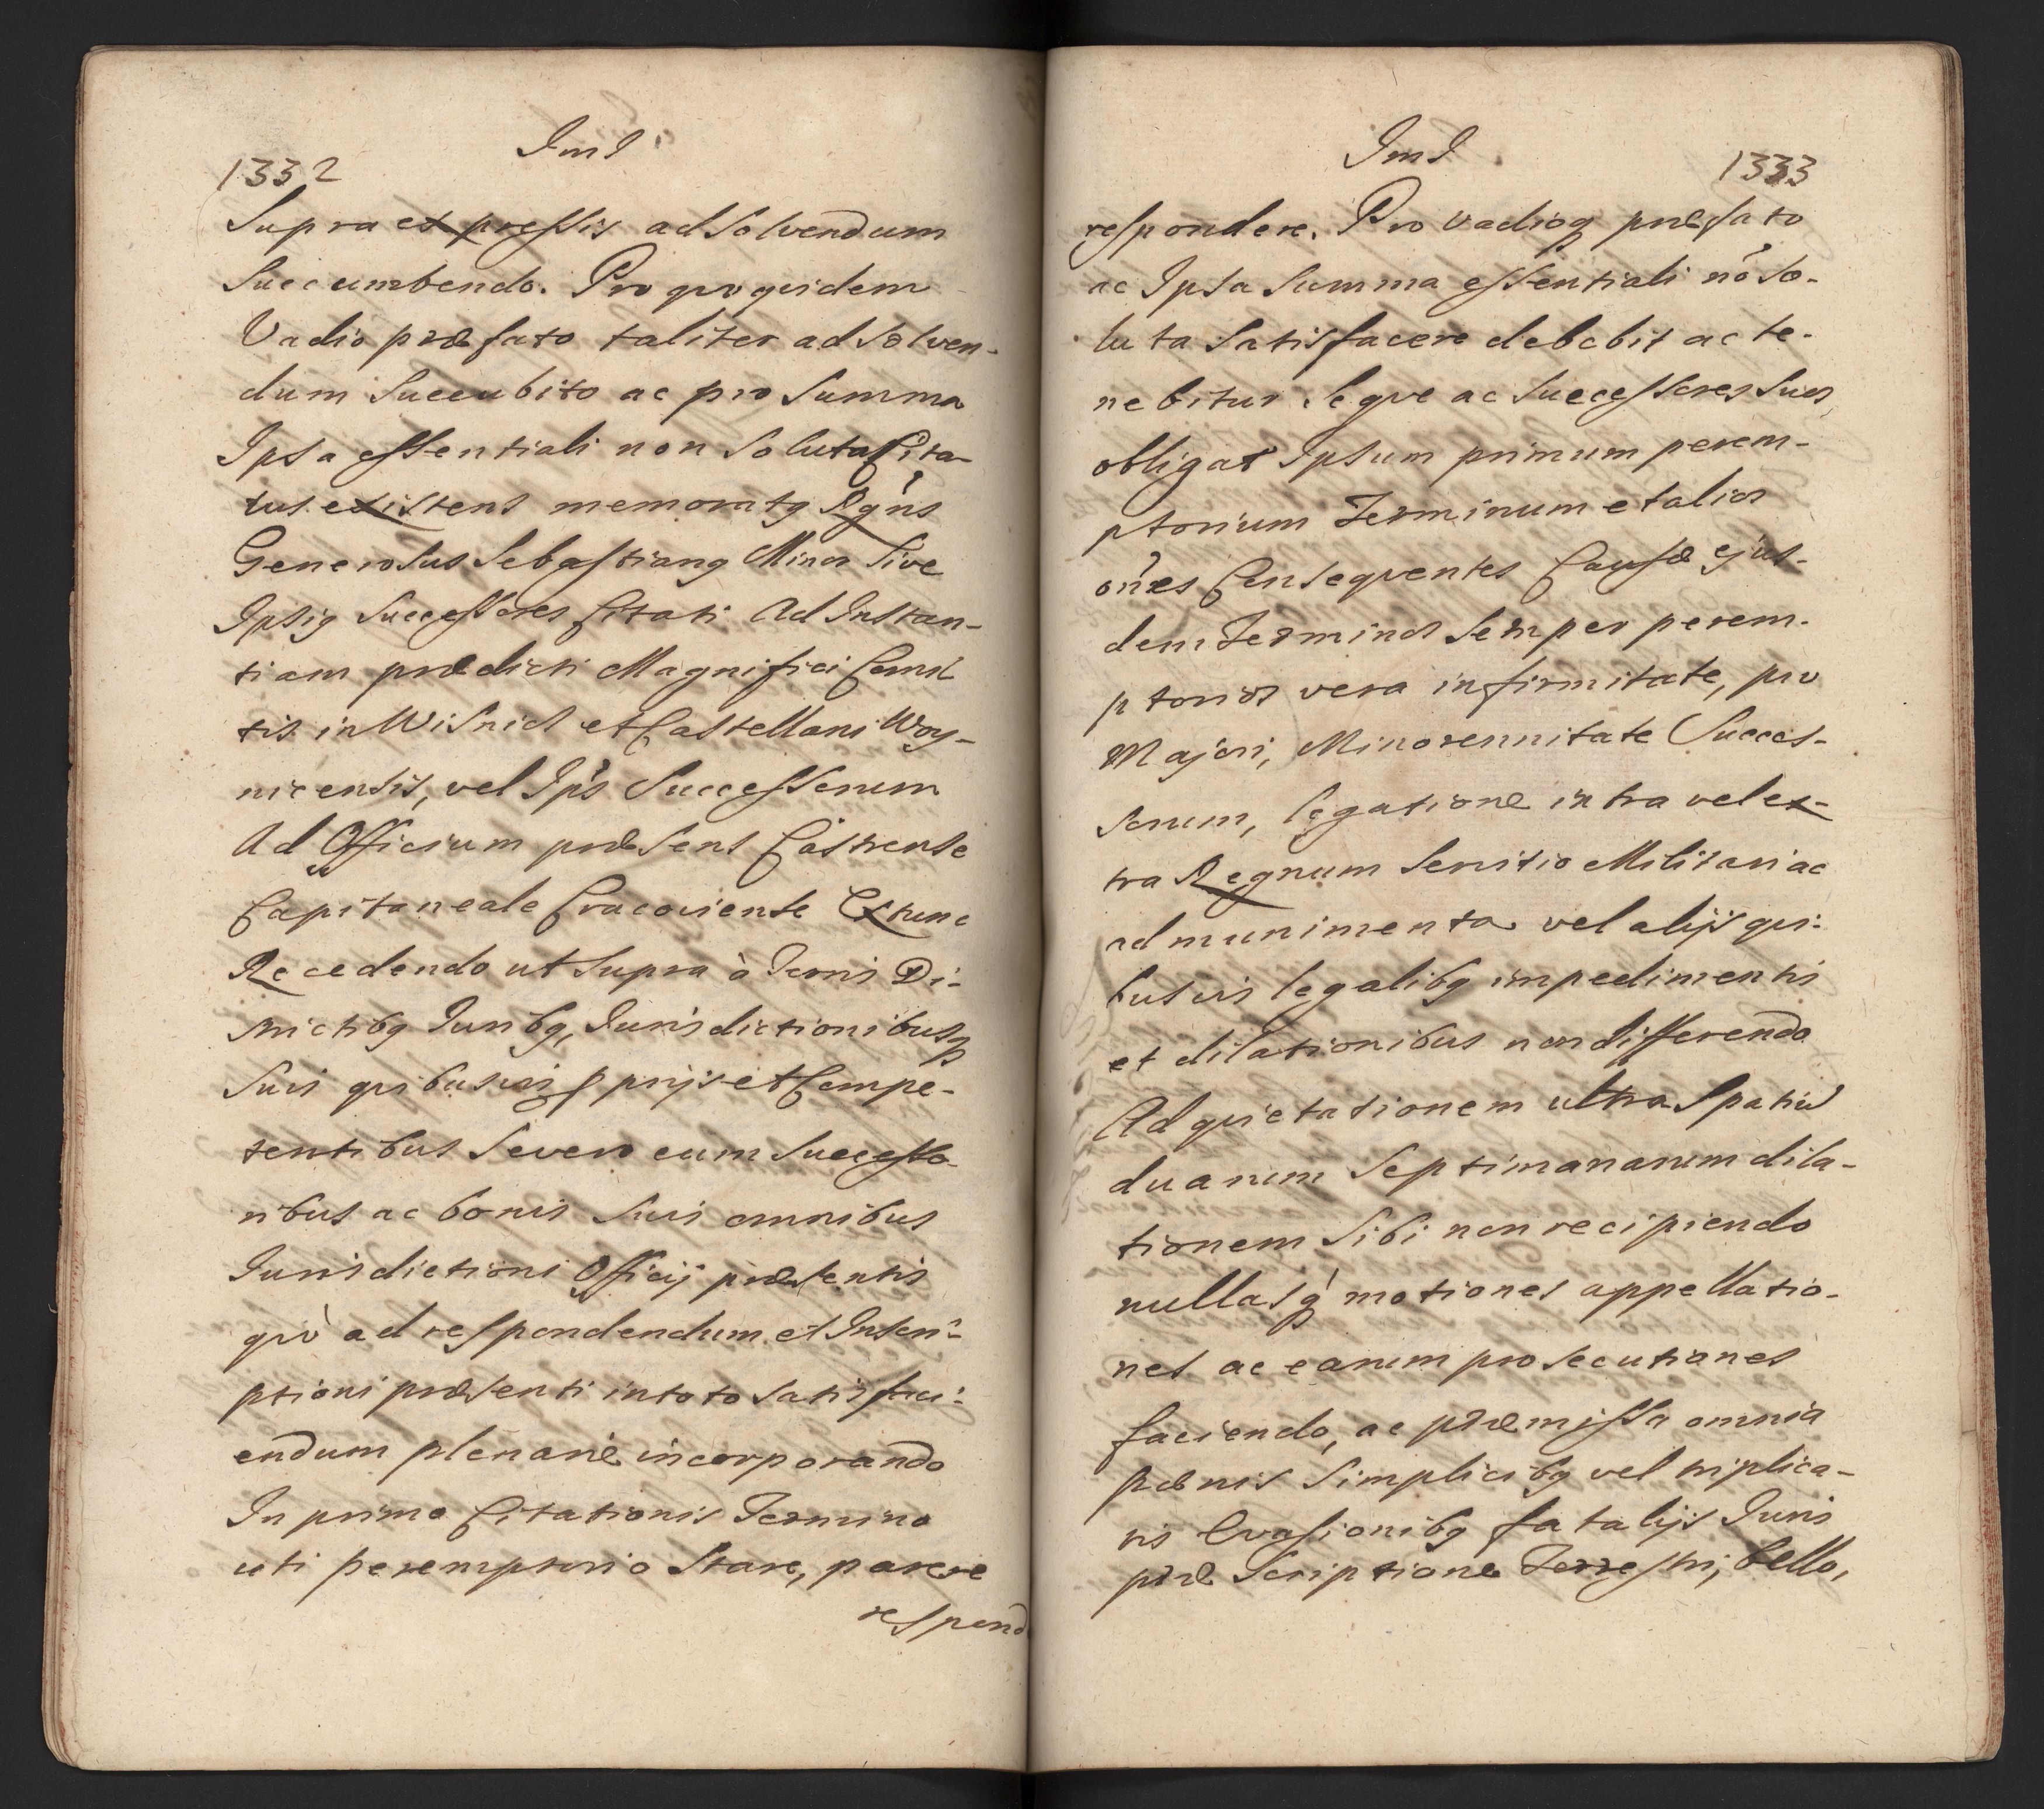 1332
Supra expressis ad solvendum
Succumbendo. Pro quo quidem
Vadio præfato taliter ad solven-
dum Succubito ac pro Summa
Ipsa essentiali non Soluta Cita-
tus existens memoratq Rgns
Generosus Sebastianq Minor Sive
Ipsiq Successores Citati Ad Instan-
tiam prædicti Magnifici Comi
tis in Wisnicz et Castellani Woy-
nicensis, vel Ips Successorum
Ad Officium præsens Castrense
Capitaneale Cracoviense Extunc
Recedendo ut supra à Terris Di-
strictibq Juribq, Jurisdictionibusq
Suis quibusvis pprijs et Compe-
tentibus Severo cum Successo-
ribus ac bonis Suis omnibus
Jurisdictioni Officij præsentis
quò ad respondendum et Inscri-
ptioni præsenti in toto satisfaci-
endum plenariè incorporando
In primo Citationis Termino
uti peremptorio Stare, parere
respond
1333
respondere. Pro vadioq præfato
ac Ipsa Summa essentiali nó so-
luta Satisfacere debebit ac te-
nebitur Seque ac Successores Suos
obligat Ipsum primum perem-
ptorium Terminum et alios
ones Consequentes Causæ ejus-
dem Terminos Semper perem-
ptorios vera infirmitate, pro
Majori, Minorennitate Succes-
sorum, legatione intra vel ex-
tra Regnum Servitio Militari ac
ad munimenta vel alijs qui-
busvis legalibq impedimentis
et dilationibus non differendo
Ad quietationem ultra Spatiũ
duarum Septimanarum dila-
tionem Sibi non recipiendo
nullasq motiones appellatio-
nes ac earum prosecutiones
faciendo, ac præmissa omnia
pænis Simplicibq vel triplica-
tis Evasionibq fatalijs Juris
præscriptione Terrestri, bello,